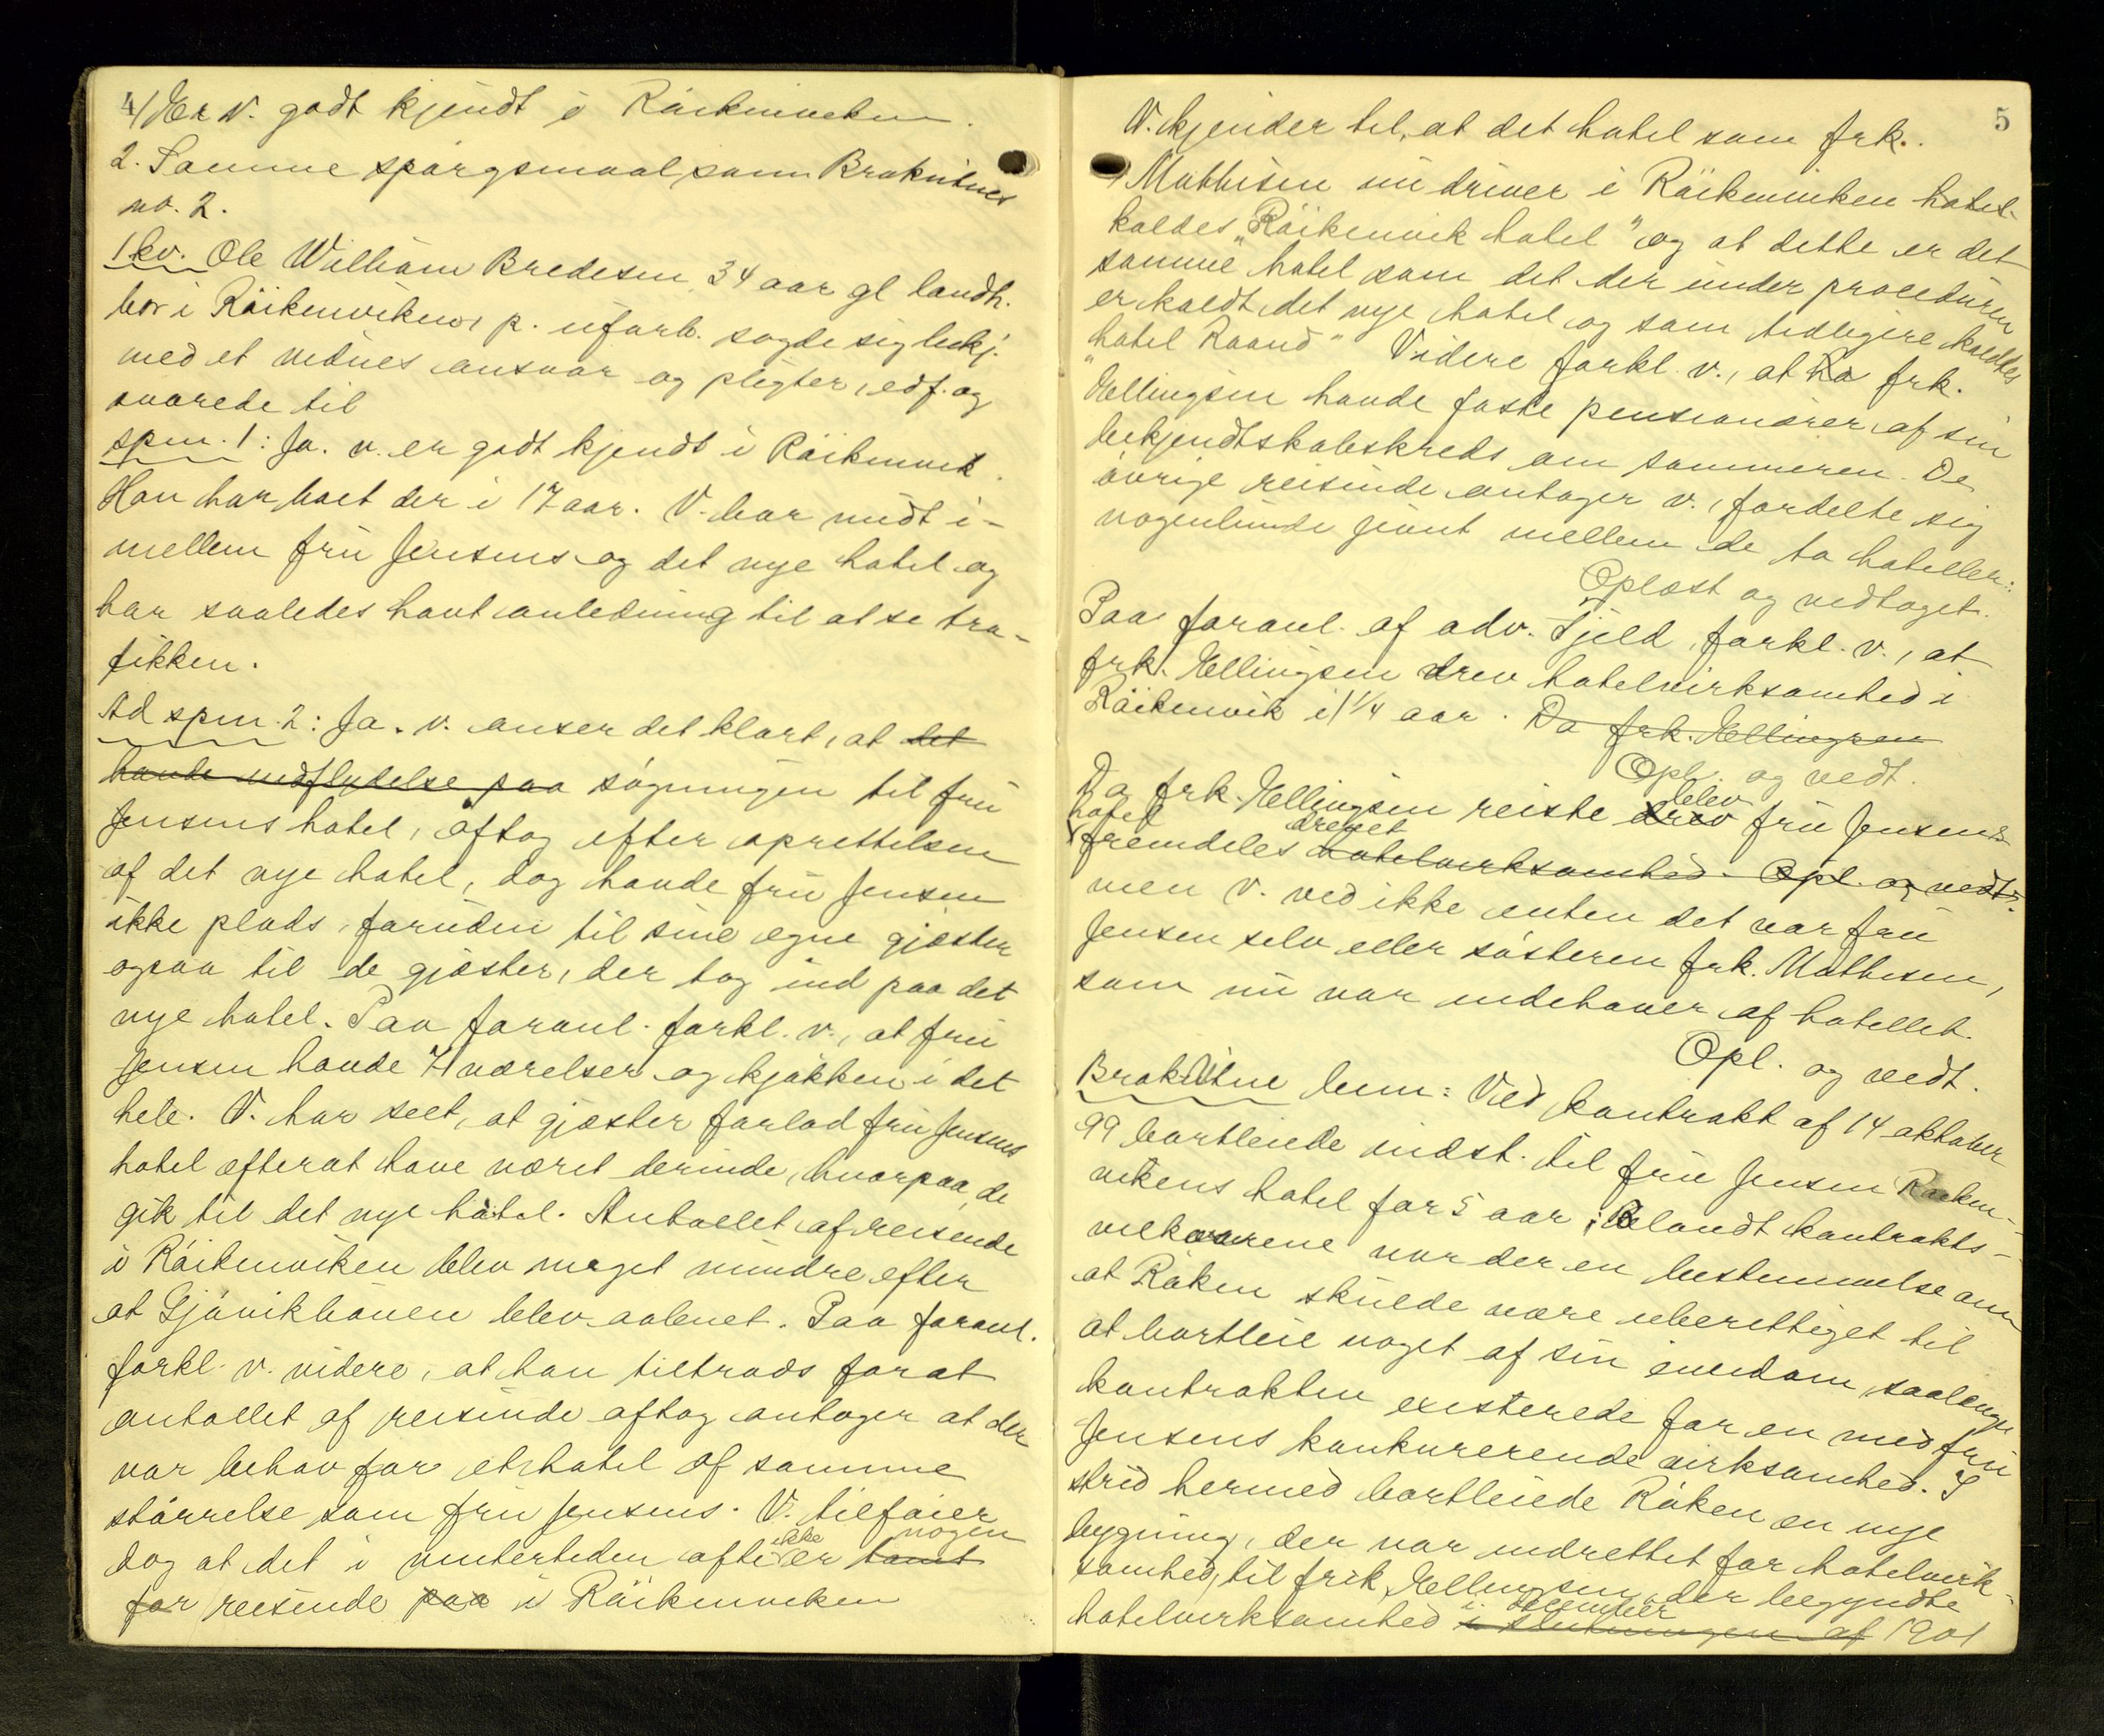 4
1/ Er v. godt kjendt i Röikenviken.
2. Samme spörgsmaal som Brakvitnes
no. 2.
1 kv. Ole William Bredesen, 34 aar gl landh.
bor i Röikenviken, p. uforb. sagde sig bekj.
med et vidnes ansvar og pligter, edf. og
svarede til
spm. 1: Ja. v. er godt kjendt i Röikenvik.
Han har boet der i 17 aar. V. bor midt i-
mellem fru Jensens og det nye hotel og
har saaledes havt anledning til at se tra-
fikken.
Ad spm. 2: Ja. v. anser det klart, at det
havde indflydelse paa sögningen til fru
Jensens hotel, aftog efter oprettelsen
af det nye hotel, dog havde fru Jensen
ikke plads, foruden til sine egne gjæster
ogsaa til de gjæster, der tog ind paa det
nye hotel. Paa foranl. forkl. v., at fru
Jensen havde 7 værelser og kjökken i det
hele. V. har seet, at gjæster forlod fru Jensens
hotel efterat have været derinde, hvorpaa de
gik til det nye hotel. Antallet af reisende
i Röikenviken blev meget mindre efter
at Gjövikbanen blev aabnet. Paa foranl.
forkl. v. videre, at han tiltrods for at
antallet af reisende aftog antager at der
var behov for et hotel af samme
störrelse som fru Jensens. V. tilföier
dog at det i vintertiden ofte ikke er tomt nogen
for reisende paa i Röikenviken
5
V. kjender til, at det hotel som frk.
Mathisen nu driver i Röikenviken hotel
kaldes "Röikenvik hotel" og at dette er det
samme hotel som det der under proceduren
er kaldt det nye hotel og som tidligere kaldtes
"hotel Raand" Videre forkl. v., at ha frk.
Ellingsen havde faste pensionærer af sin
bekjendtskabskreds om sommeren. De
övrige reisende antager v., fordelte sig
nogenlunde jevnt mellem de to hoteller.
Oplæst og vedtaget.
Paa foranl. af adv. Fjeld, forkl. v., at
frk. Ellingsen drev hotelvirksomhed i
Röikenvik i 1 1/4 aar. Da frk. Ellingsen
Opl. og vedt.
Da frk. Ellingsen reiste drev blev fru Jensens
hotel fremdeles drevet hotelvirksomhed. Opl. og vedt.
men v. ved ikke enten det var fru
Jensen selv eller sösteren frk. Mathisen,
som nu var indehaver af hotellet.
Opl. og vedt.
Brakvitne bem: Ved kontrakt af 14 oktober
99 bortleiede indst. til fru Jensen Röken-
vikens hotel for 5 aar; Blandt kontrakts-
vilkaarene var der en bestemmelse om
at Röken skulde være uberettiget til
at bortleie noget af sin eiendom, saalænge
kontrakten existerede for en med fru
Jensens konkurerende virksomhed. I
strid hermed bortleiede Röken en nye
bygning, der var indrettet for hotelvirk-
somhed, til frk. Ellingsen, der begyndte
hotelvirksomhed i slutningen af i december 1901